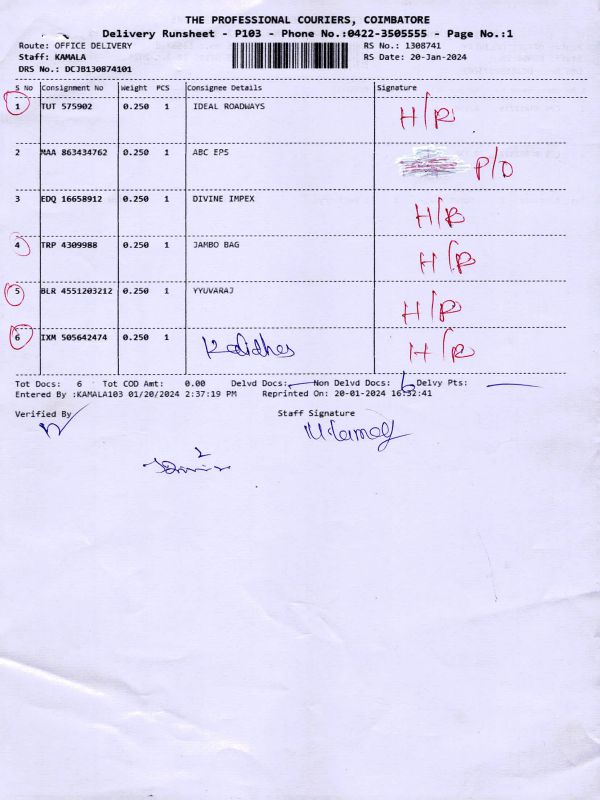 THE PROFESSIONAL COURIERS, COIMBATORE
Delivery Runsheet - P103 - Phone No.:0422-3505555 - Page No.:1
Route: OFFICE DELIVERY RS No.: 1308741
Staff: KAMALA RS Date: 20-Jan-2024
DRS No.: DCJB130874101
S No Consignment No Weight PCS Consignee Details Signature
1 TUT 575902 0.250 1 IDEAL ROADWAYS H/R
2 MAA 863434762 0.250 1 ABC EPS P/O
3 EDQ 16658912 0.250 1 DIVINE IMPEX H/R
4 TRP 4309988 0.250 1 JAMBO BAG H/R
5 BLR 4551203212 0.250 1 YYUVARAJ H/R
6 IXM 505642474 0.250 1 H/R
Tot Docs: 6 Tot COD Amt: 0.00 Delvd Docs: Non Delvd Docs: 6 Delvy Pts:
Entered By :KAMALA103 01/20/2024 2:37:19 PM Reprinted On: 20-01-2024 16:32:41
Verified By Staff Signature